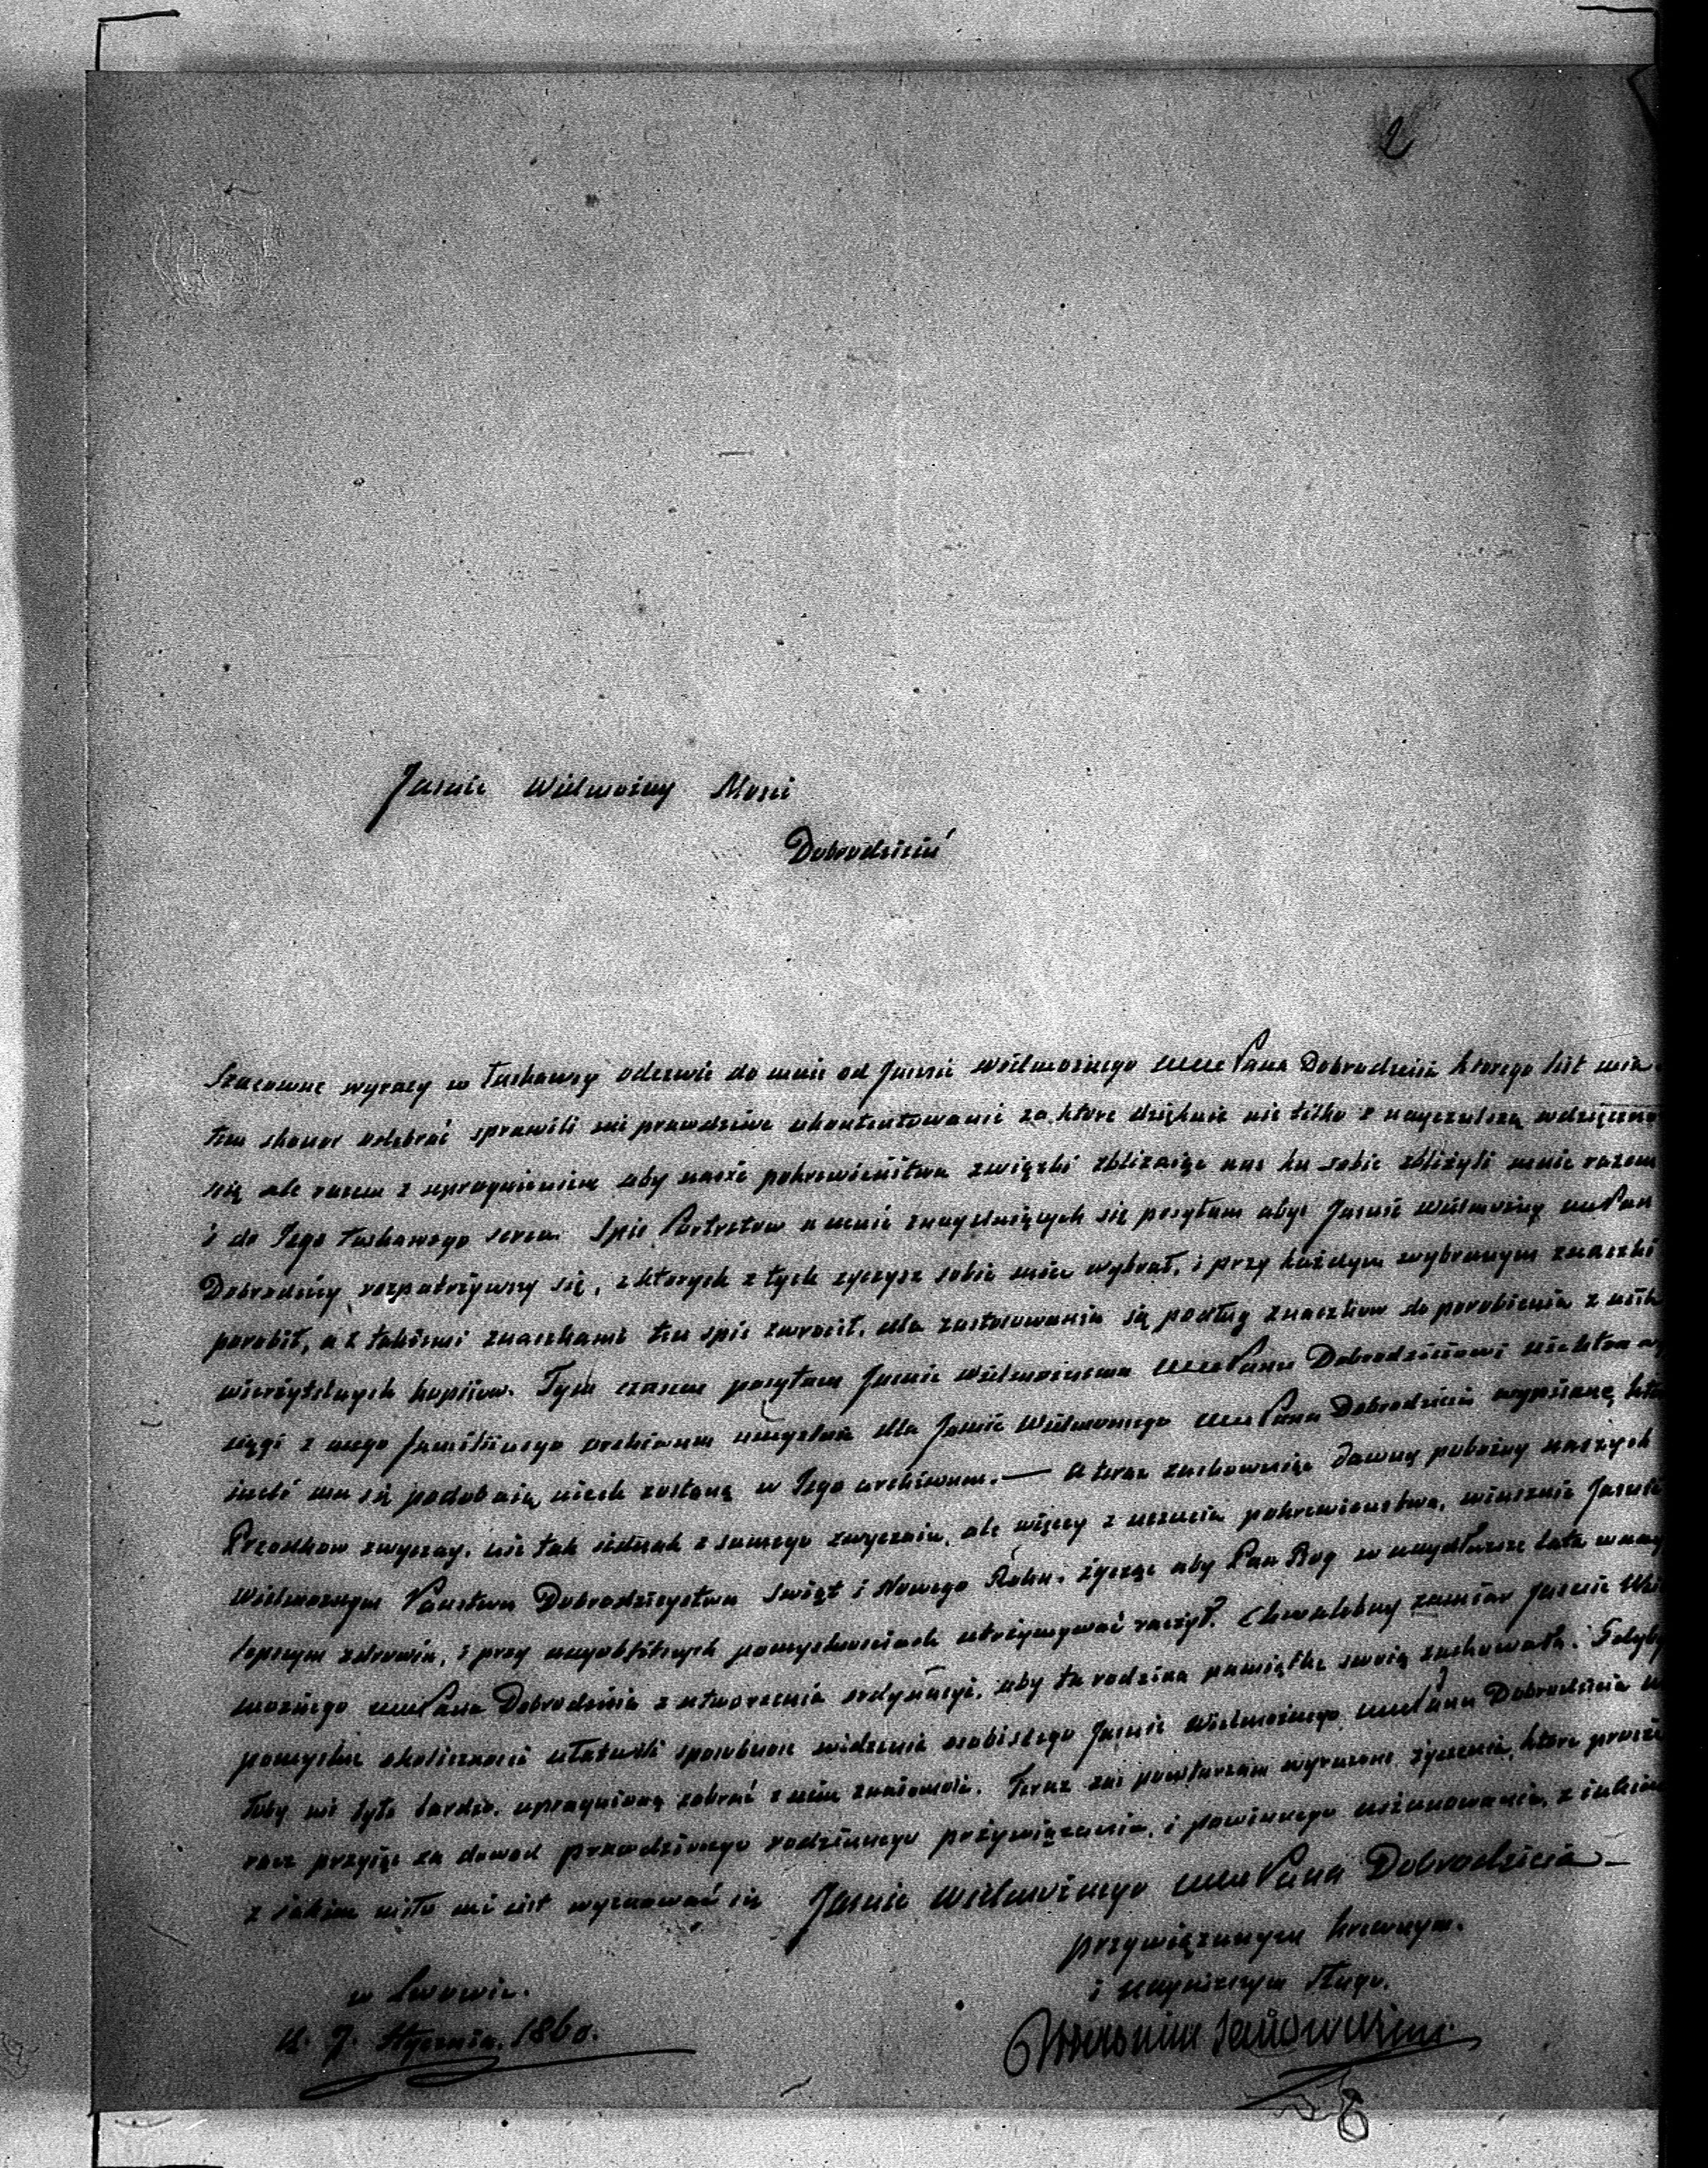 2
Jasnie Wielmożny Mosci
Dobrodzieiu
Szacowne wyrazy w łaskawey odezwie do mnie od Jasnie Wielmożnego Pana Dobrodzieia ktorego list mia
tem honor odebrać sprawili mi prawdziwe ukontentowanie za ktore dziękuie nie tilko z nayczulszą wdzięczno
scią ale razem z upragnieniem aby nasze pokrewieństwa związki zbliżaiąc nas ku sobie zbliżyli mnie razem
i do Jego łaskawego serca. Spis Portretow u mnie znayduiących się posyłam abyś Jasnie Wielmożny Pan
Dobrodziey rozpatrzywszy się, z ktorych z tych życzysz sobie mieć wybrał, i przy każdym wybranym znaczki
porobił, a z takiemi znaczkami ten spis zwrocił, dla zastosowania się podług znaczkow do porobienia z nich
wierzytelnych kopiiow. Tym czasem posyłam Jasnie Wielmożnemu Panu Dobrodzieiowi niektore wy
ciągi z mego familiinego archiwum umyslnie dla Jasnie Wielmożnego Pana Dobrodzieia wypisane, kto
iesli mu się podobaią niech zostaną w Jego archiwum. — A teraz zachowuiąc dawny pobożny naszych
Przodkow zwyczay, nie tak iednak z samego zwyczaiu, ale więcey z uczucia pokrewienstwa, winszuie Jasnie
Wielmożnym Panstwu Dobrodzieystwu Swiąt i Nowego Roku, życząc aby Pan Bog w naydłuższe lata w nay
lepszym zdrowiu, i przy nayobfitszych pomyslnosciach utrzymywać raczył. Chwalebny zamiar Jasnie Wiel
możnego Pana Dobrodzieia z utworzenia ordynacyi, aby ta rodzina pamiątkę swoią zachowała. Gdyby
pomyslne okolicznosci ułatwili sposobnosc widzenia osobistego Jasnie Wielmożnego Pana Dobrodzieia
toby mi było bardzo upragnioną zabrać z nim znaiomosc. Teraz zas powtarzam wyrażone życzenia, ktore prosze
racz przyiąć za dowod prawdziwego rodzinnego przywiązania, i powinnego uszanowania, z
z iakim miło mi iest wyznawać się Jasnie Wielmożnego Pana Dobrodzieia
przywiązanym krewnym.
i nayniższym sługą.
w Lwowie.
d. 7. Stycznia. 1860.